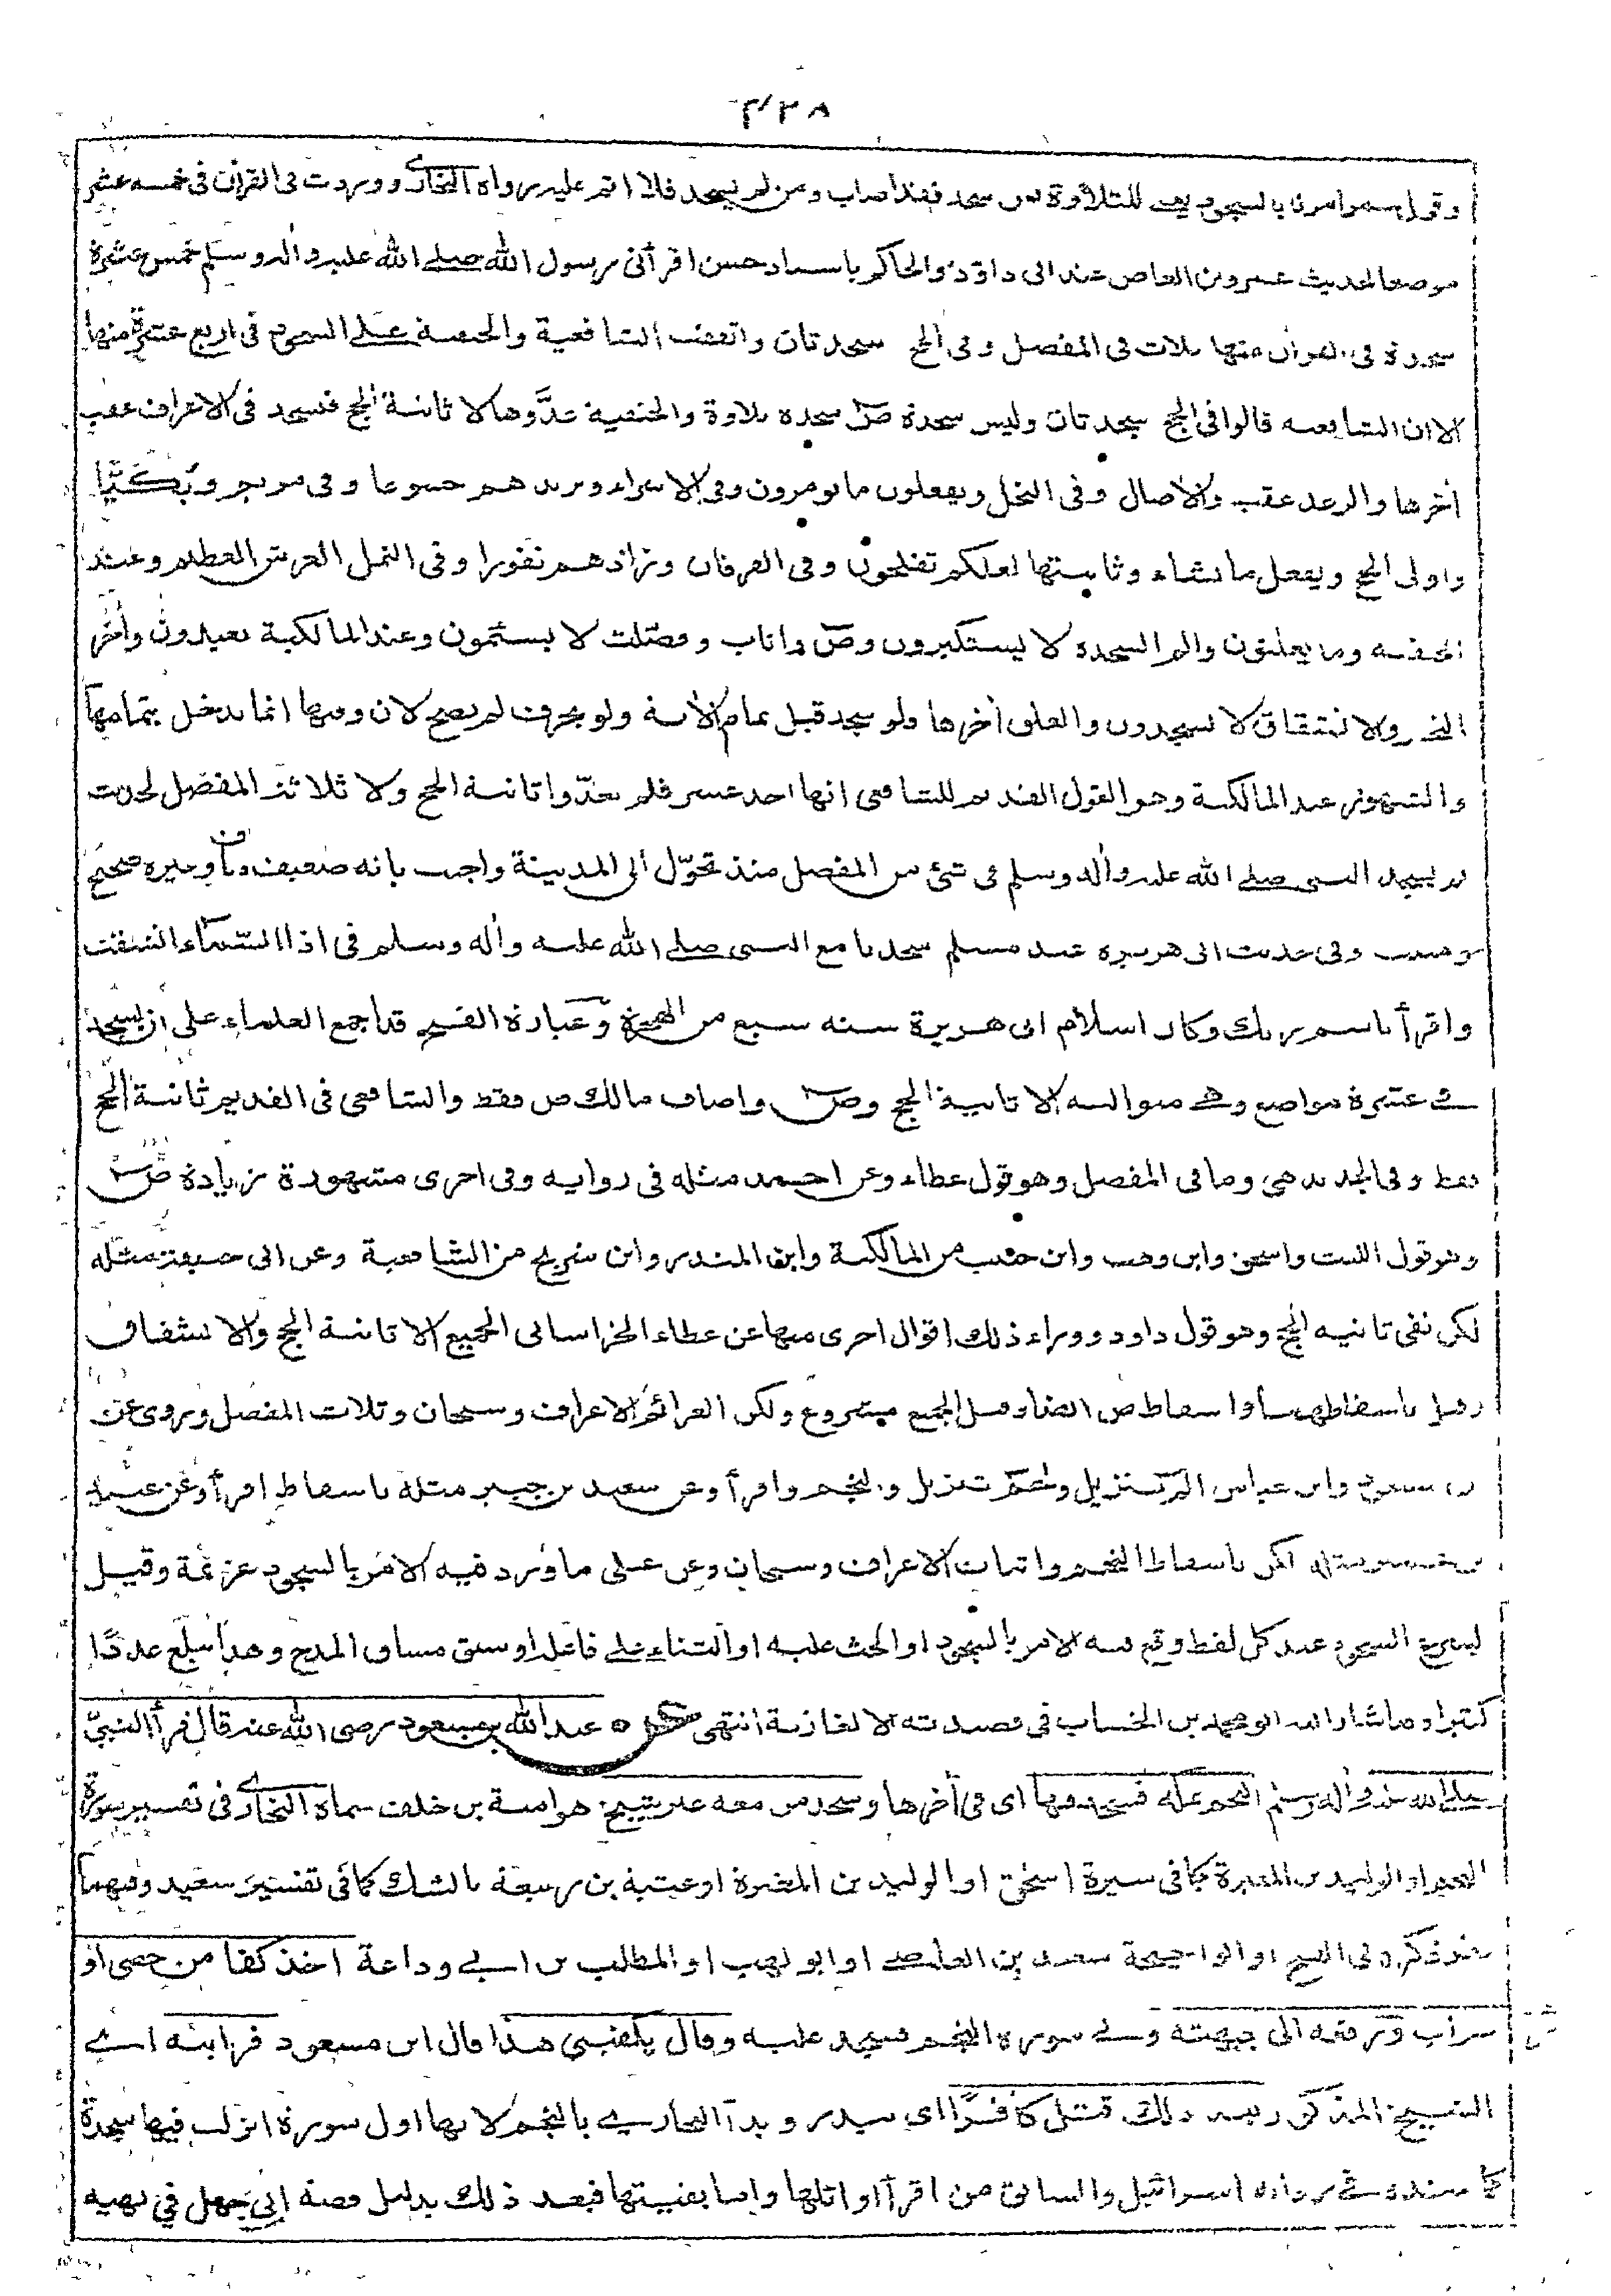 ٣٢٨
وقول عمر امرنا بالسجود يعنى للتلاوة فمن سجد فقد اصاب ومن لم يسجد فلا اثم عليه رواه البخارى ووردت فى القرآن فى خمسه عشر
موضعا لحديث عمرو بن العاص عند ابى داود والحاكم باسناد حسن اقرأنى رسول الله صلى الله عليه وأله وسلم خمس عشرة
سجدة فى القرآن منها ثلاث فى المفصل وفى الحج سجدتان واتفقت الشافعية والحنفية على السجود فى اربع عشرة منها
الا ان الشافعيه قالوا فى الحج سجدتان وليس سجدة صٓ سجده تلاوة والحنفية عدّوها لا ثانية الحج فيسجد فى الاعراف عقب
أخرها والرعد عقب والأصال وفى النحل ويفعلون ما يومرون وفى الاسراء ويزيدهم خشوعا وفى مريم وبُكيّا
واولى الحج ويفعل ما يشاء وثانيتها لعلكم تفلحون وفى الفرقان وزادهم نفورا وفى النمل العرش العظيم وعند
الحنفيه وما يعلنون والم السجده لا يستكبرون وصٓ واناب وفصّلت لا يسئمون وعند المالكية تعبدون وأخر
النجم والانشقاق لا يسجدون والعلق أخرها ولو سجد قبل تمام الأية ولو بحرف لم يصح لان وقتها انما يدخل بتمامها
والمشهور عند المالكية وهو القول القديم للشافعى انها احد عشر فلم يعدّوا ثانية الحج ولا ثلاثة المفصل لحديث
لم يسجد النبى صلى الله عليه وأله وسلم فى شئ من المفصل منذ تحوّل الى المدينة واجيب بانه ضعيف وناف وغيره صحيح
ومثبت وفى حديث ابى هريره عند مسلم سجدنا مع النبى صلى الله عليه وأله وسلم فى اذا السّماء انشقت
واقرأ باسم ربك وكان اسلام ابى هريرة سنه سبع من الهجرة وعبارة الفتح قد اجمع العلماء على انه يسجد
فى عشرة مواضع وهى متواليه الا ثانية الحج وصٓ واضاف مالك ص فقط والشافعى فى القديم ثانية الحج
فقط وفى الجديد هى وما فى المفصل وهو قول عطاء وعن احمد مثله فى روايه وفى اخرى مشهورة زيادة صٓ
وهو قول الليث واسحق وابن وهب وابن حبيب من المالكية وابن المنذر وابن سريج من الشافعية وعن ابى حنيفة مثله
لكن نفى ثانيه الحج وهو قول داود ووراء ذلك اقوال اخرى منها عن عطاء الخراسانى الجميع الا ثانية الحج والانشقاق
وقيل باسقاطهما واسقاط ص ايضا وقيل الجميع مشروع ولكن العزائم الاعراف وسبحان وثلاث المفصل وروى عن
ابن مسعود وابن عباس الم تنزيل وحم تنزيل والنجم واقرأ وعن سعيد بن جبير مثله باسقاط اقرأ وعن عبيد
بن عمير مثله لكن باسقاط النجم واثبات الاعراف وسبحان وعن على ما ورد فيه الامر بالسجود عزيمة وقيل
يشرع السجود عند كل لفظ وقع فيه الامر بالسجود او الحث عليه او الثناء على فاعله او سيق مساق المدح وهذا يبلغ عددًا
كثيرا وقد اشار اليه ابو محمد بن الخشاب فى قصيدته الالغازية انتهى عن عبد الله بن مسعود رضى الله عنه قال قرأ النبيّ
صلى الله عليه وأله وسلم النجم بمكة فسجد فيها اى فى أخرها وسجد من معه غير شيخ هو امية بن خلف سماه البخارى فى تفسير سورة
النجم او الوليد بن المغيرة كما فى سيرة ابن اسحق او الوليد بن المغيرة او عتبة بن ربيعة بالشك كما فى تفسير سعيد وفيهما
نظر ذكره فى الفتح او ابو احيحة سعيد بن العاص او ابو لهب او المطلب بن ابى وداعة اخذ كفا من حصى او
تراب ورفعه الى جبهته وفى سوره النجم فسجد عليه وقال يكفينى هذا قال ابن مسعود فرأيته اى
الشيخ المذكور بعد ذلك قتل كافرًا اى ببدر وبدأ البخارى بالنجم لانها اول سورة انزلت فيها سجدة
كما عنده فى رواية اسرائيل والسابق من اقرأ اوائلها واما بقيتها فبعد ذلك بدليل قصة ابى جهل فى نهيه